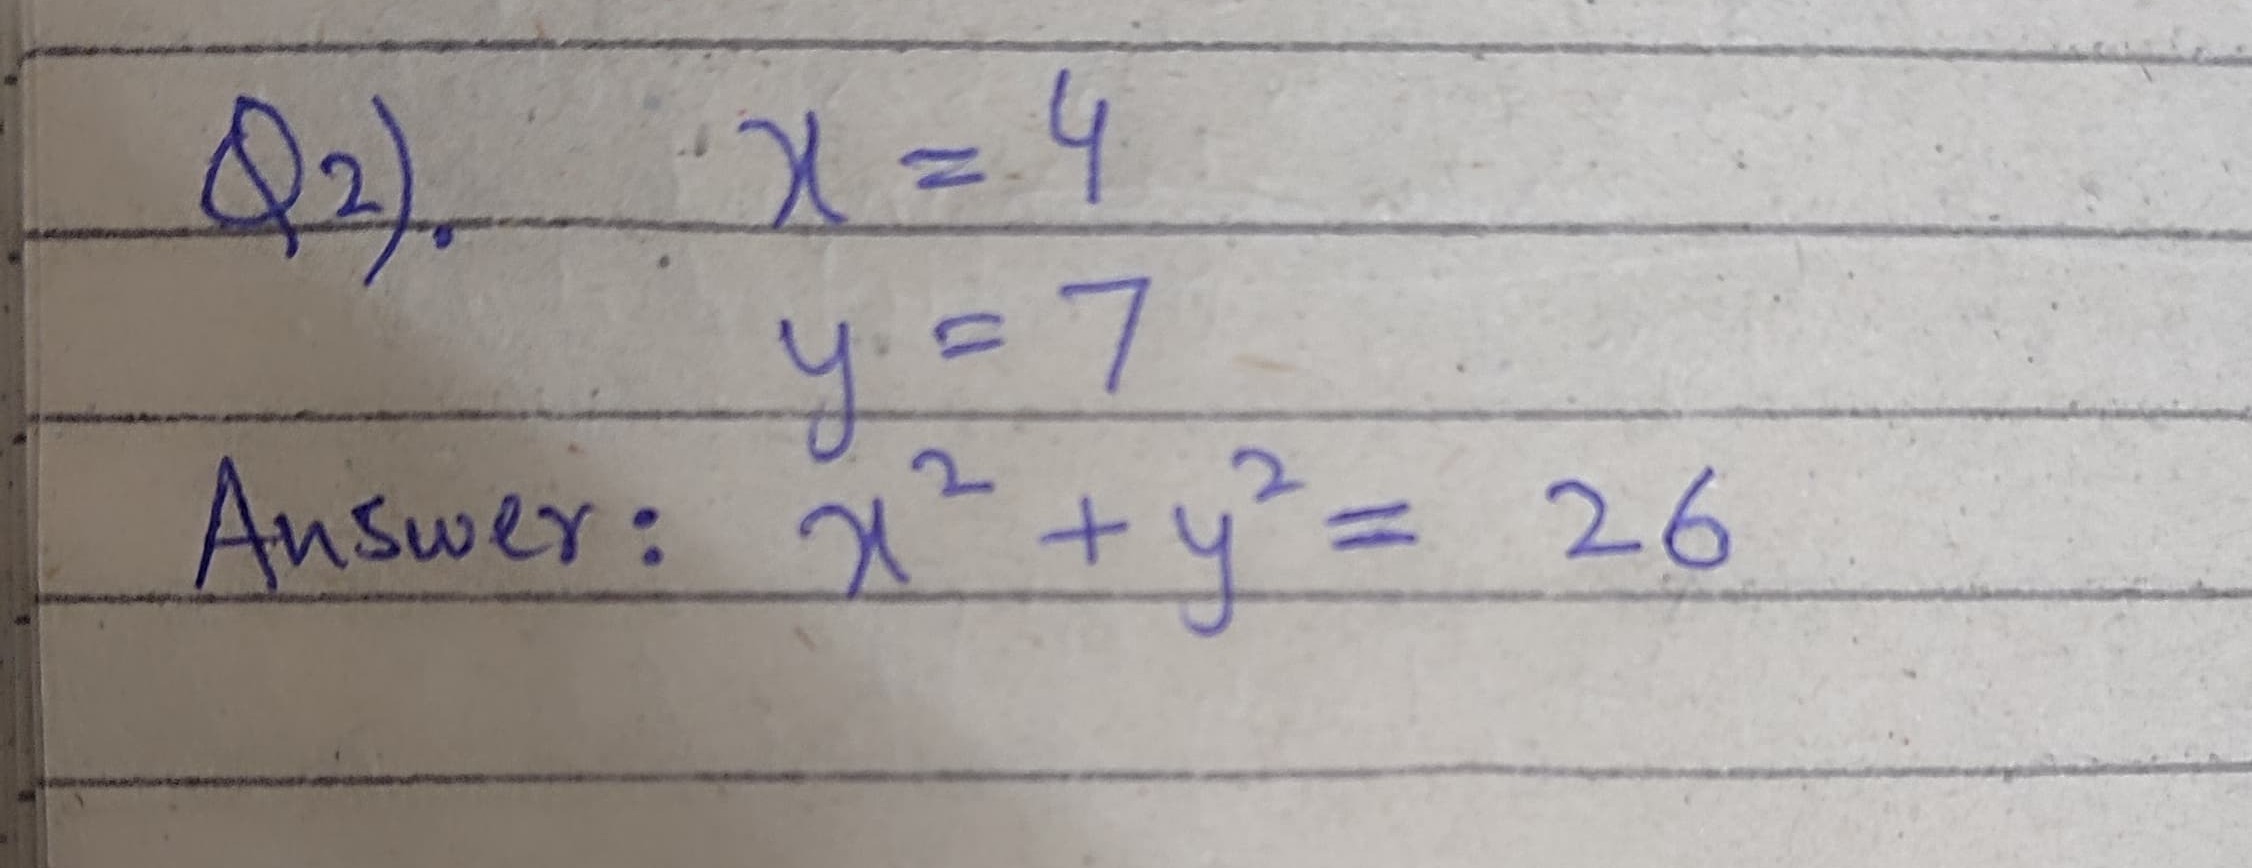 Q2). x = 4
y = 7
Answer: x² + y² = 26